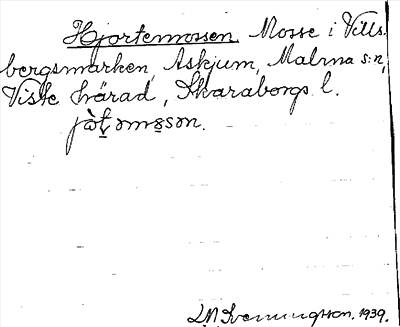 Hjortemossen, Mosse i Vills-
bergsmarken, Askjum, Malma s:n,
Viste härad, Skaraborgs l.
jò̀t̠əmo̠sən.
L.N. Svenungsson. 1939.